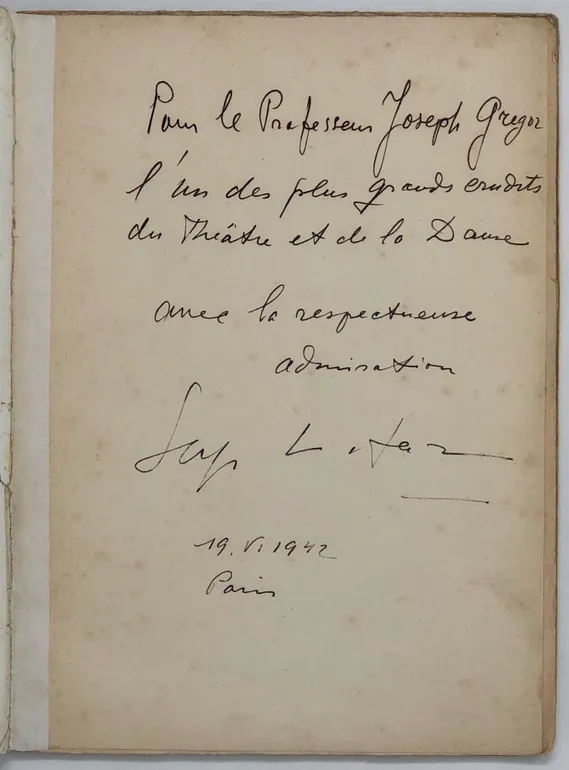 Pour le Professeur Joseph Gregor
l'un des plus grands erudits
du Théâtre et de la Danse
avec la respectueuse
admiration
Serge Lifar
19.VI.1942
Paris